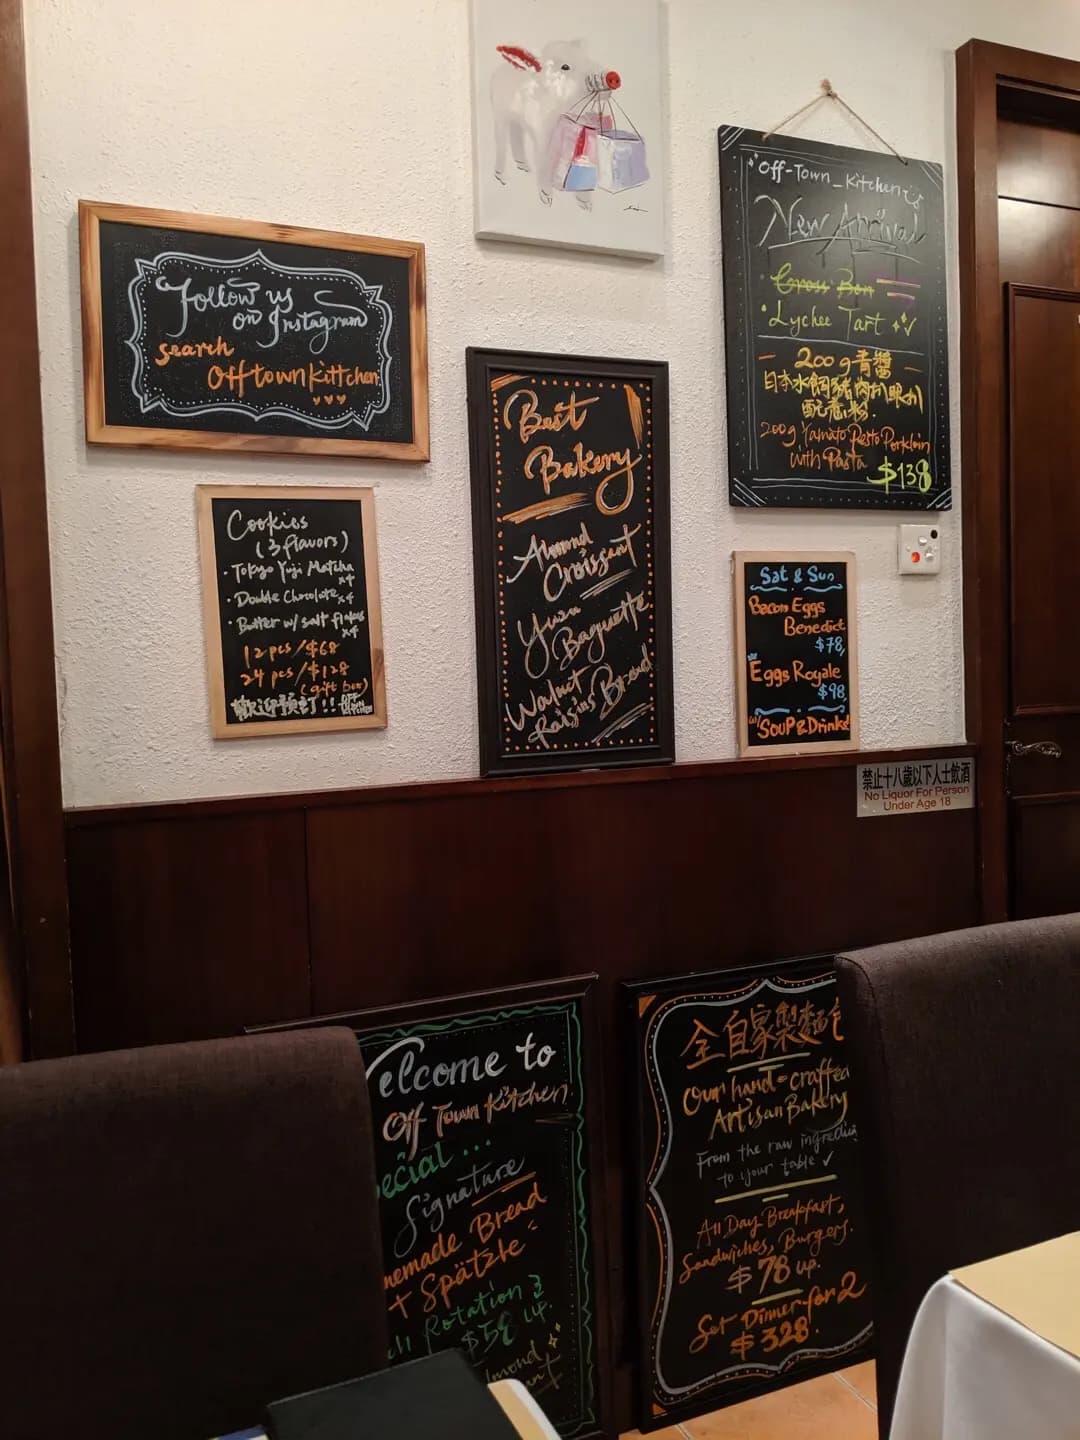 Follow us
on Instagram
search
Offtownkittchen
Cookies
(3 flavors)
• Tokyo Yuji Matcha x4
• Double Chocolate x4
• Butter w/ salt flakes x4
12 pcs /$68
24 pcs /$128
(gift box)
歡迎預訂!! OFF TOWN KITCHEN
Best
Bakery
Almond
Croissant
Yuzu
Baguette
Walnut
Raisins Bread
Off-Town_Kitchen
New Arrival
• Cross Bun
• Lychee Tart ✓
200g青醬
日本水飼豬肉扒眼扒
配意粉.
200g Yamato Pesto Porkloin
with Pasta
$138
Sat & Sun
Bacon Eggs
Benedict
$78,
Eggs Royale
$98,
w/ SOUP & Drinks!
禁止十八歲以下人士飲酒
No Liquor For Person
Under Age 18
elcome to
Off Town Kitchen
ecial ...
Signature
memade Bread
+ Spätzle
Rotation
$58 up.
lmond
ant
全自家製麵包
Our hand-crafted
Artisan Bakery
From the raw ingredie
to your table ✓
All Day Breakfast,
Sandwiches, Burgers.
$78 up.
Set Dinner for 2
$328.